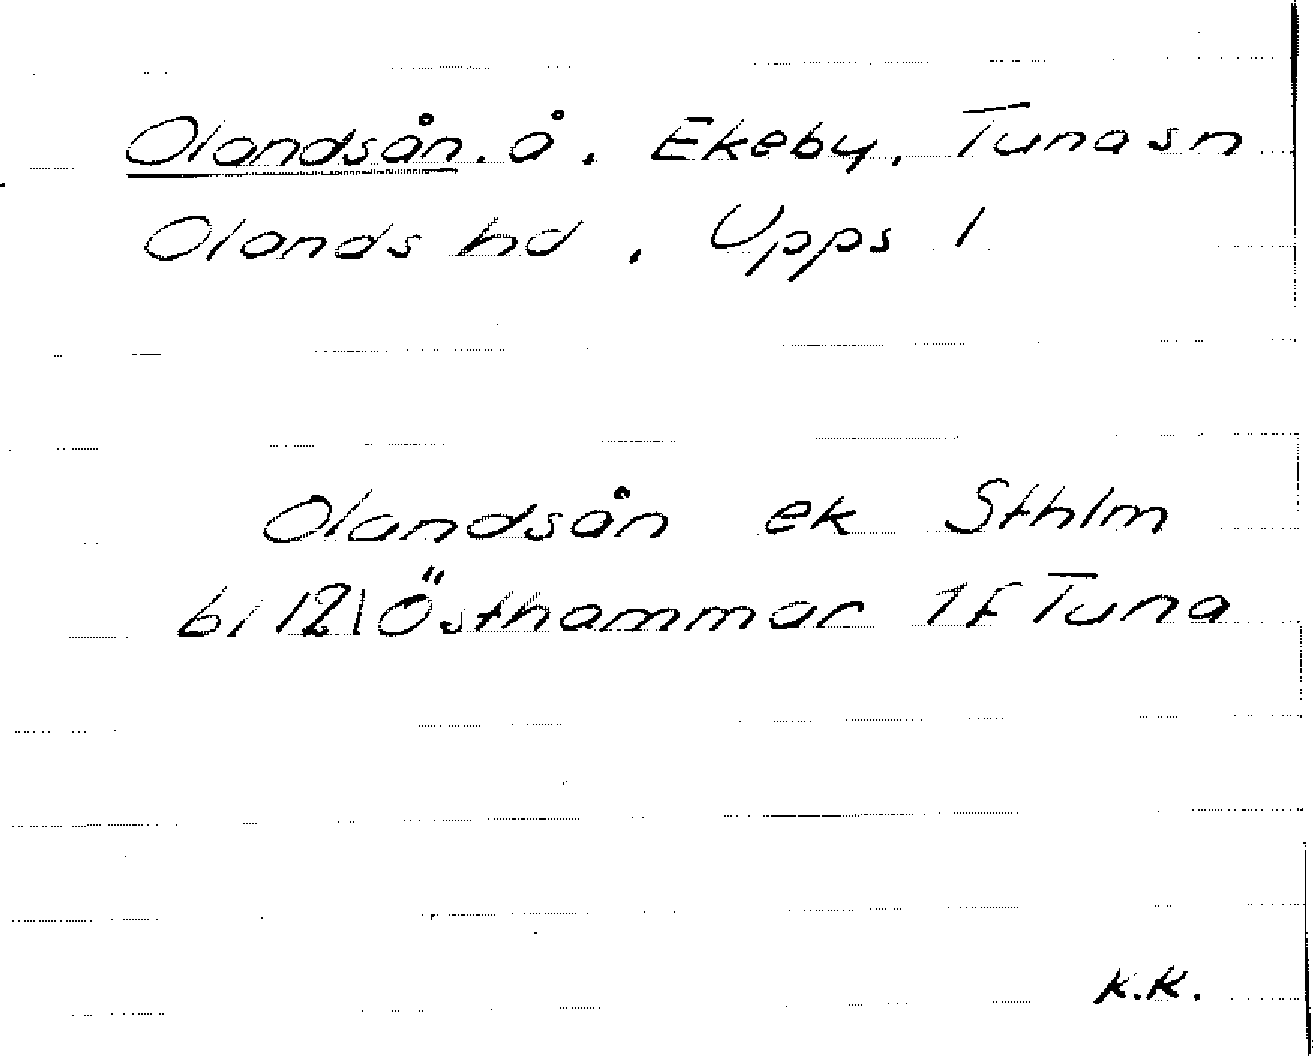 Olandsån. å. Ekeby. Tuna sn
Olands hd. Upps l
Olandsån ek Sthlm
bl 121 Östhammar 1f Tuna
K.K.